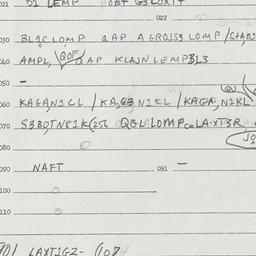 021 51 LEMP OBT G3LOXIT
022
030 BL1C LOMP QAP AGROSS3 LOMP /
040 AMPL, QOF QAP KLAJN LEMP3L3
050 —
060 KAGAN1CL / KA,G3 N1KL / KAGA, N1KL
070 S3BOTNE1K(256 QGL LOMP CM LA-XT3R
080
090 NAFT 091 —
100
110
901 LAXT1GZ- (107